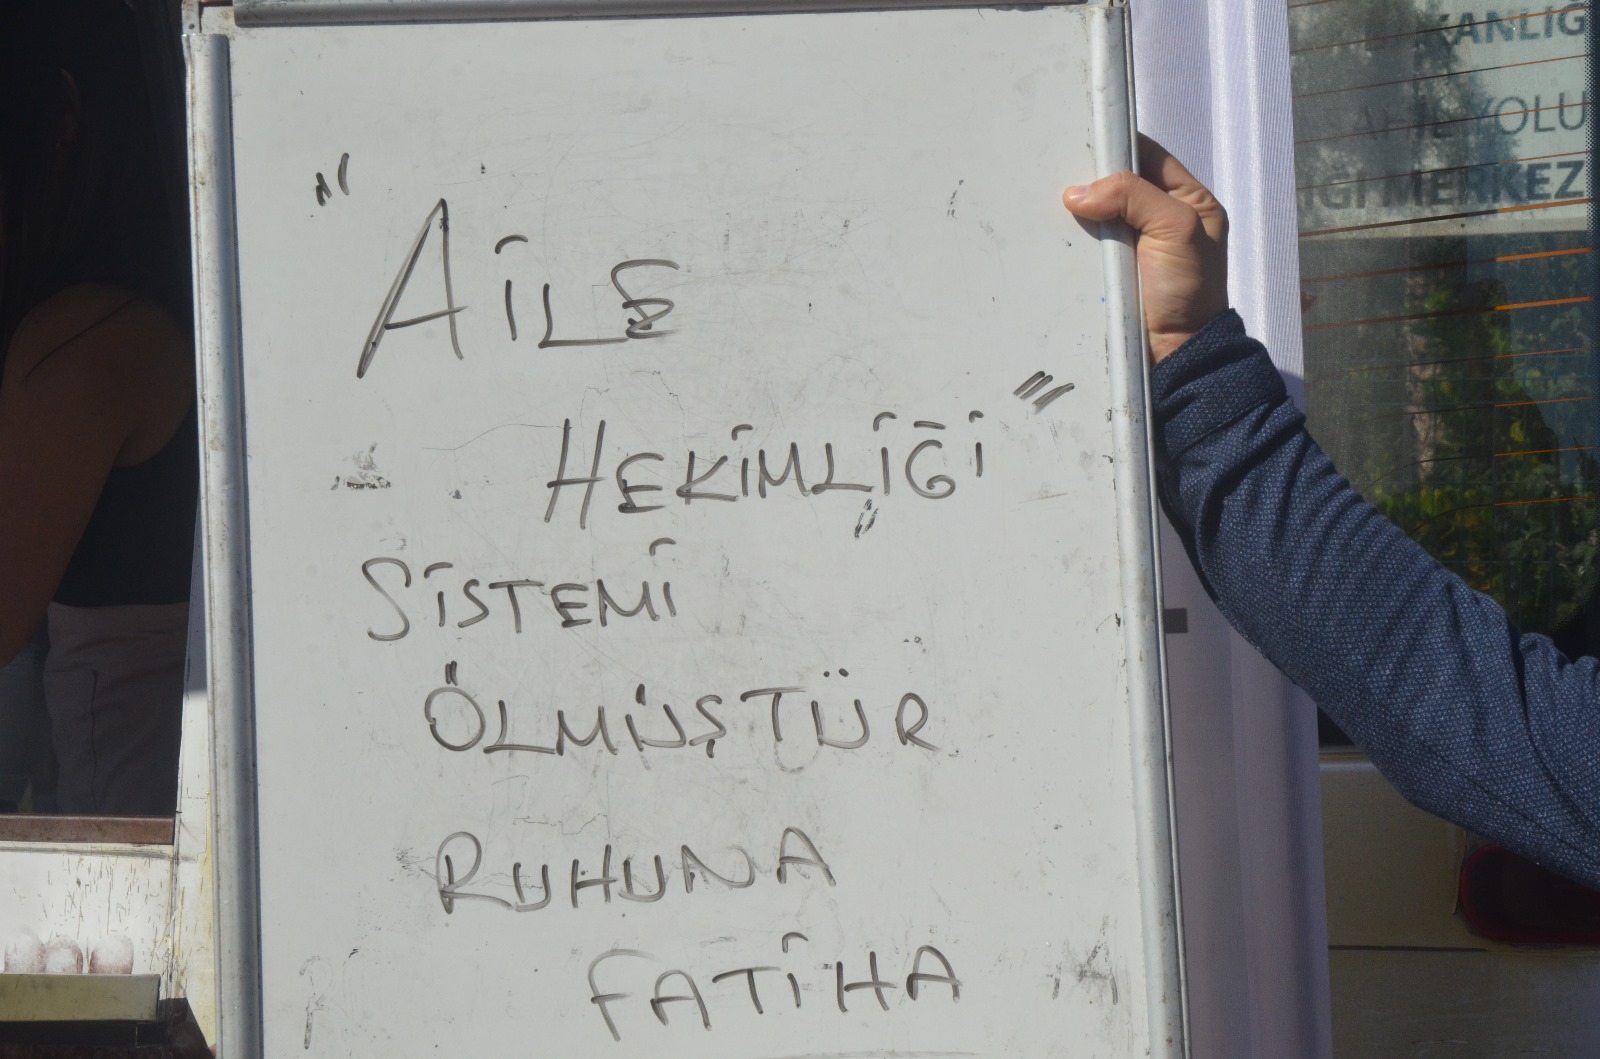 "AİLE
HEKİMLİĞİ"
SİSTEMİ
ÖLMÜŞTÜR
RUHUNA
FATİHA
YOLU
MERKEZ